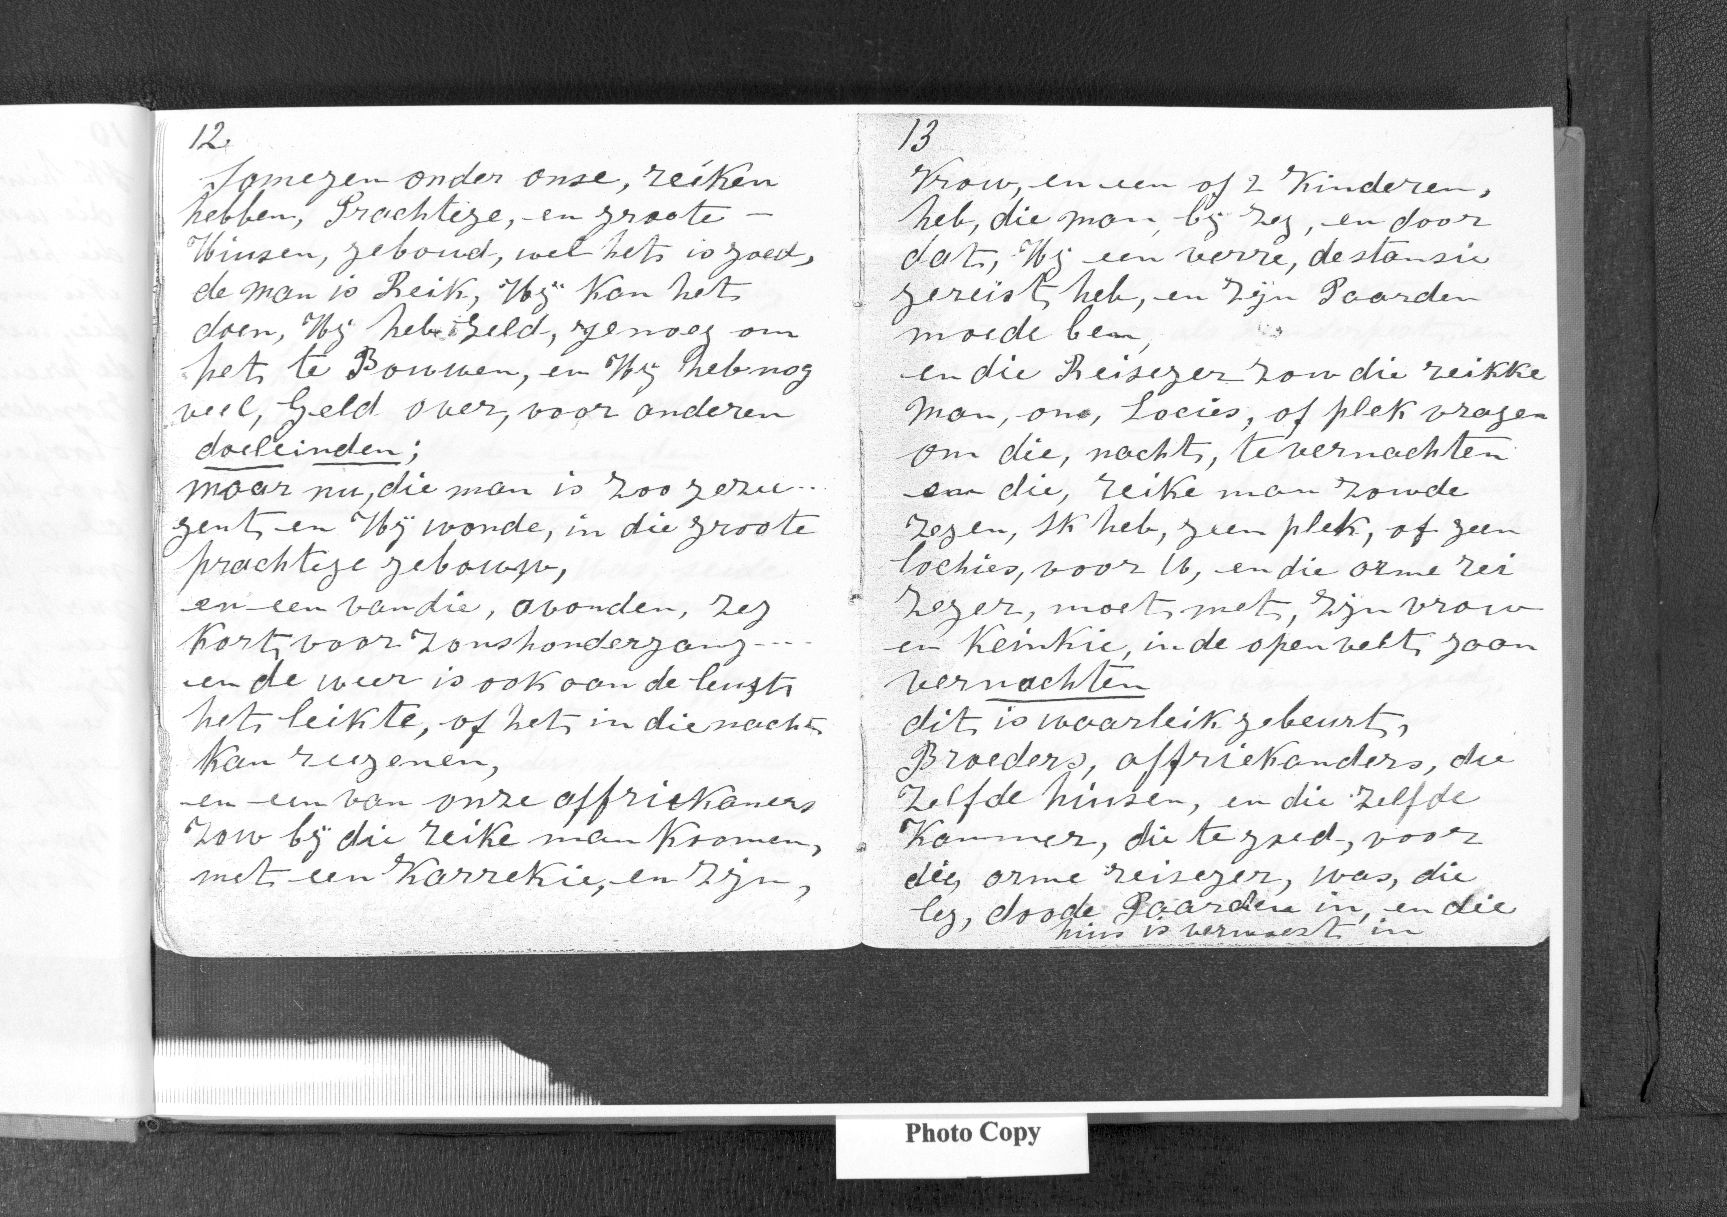 12.
Somegen onder onse, reiken
hebben, Prachtege, en groote —
Huisen, geboud, wel het is goed,
de man is Reik, Hÿ kan het
doen, Hÿ heb Geld, genoeg om
het te Bouwen, en Hÿ heb nog
veel, Geld over, voor anderen
doeleinden;
maar nu, die man is zoo geze...
gent en Hÿ wonde, in die groote
prachtege gebouw,
en een van die, avonden, zeg
kort voor zonshondergang----
en de weer is ook aan de leugt
het leikte, of het in die nacht
kan reegenen,
en een van onze affriekaners
zow bÿ die reike man koomen,
met een Karrekie, en zÿn,
13
Vrow, en een of 2 Kinderen,
heb, die man, bÿ zeg, en door
dat, Hÿ een verre, destansie
gereist heb, en zÿn Paarden
moede ben,
en die Reiseger zow die reikke
man, om, Locies, of plek vragen
om die, nacht, te vernachten
en die, reike man zowde
zegen, Ik heb, geen plek, of geen
lochies, voor U, en die arme rei
zeger, moet met, zÿn vrow
en keinkie, in de open velt gaan
vernachten
dit is waarleik gebeurt,
Broeders, affriekanders, die
zelfde huisen, en die zelfde
Kammer, die te goed, voor
die, arme reiseger, was, die
leg, doode Paarden in, en die
huis is verwoest in